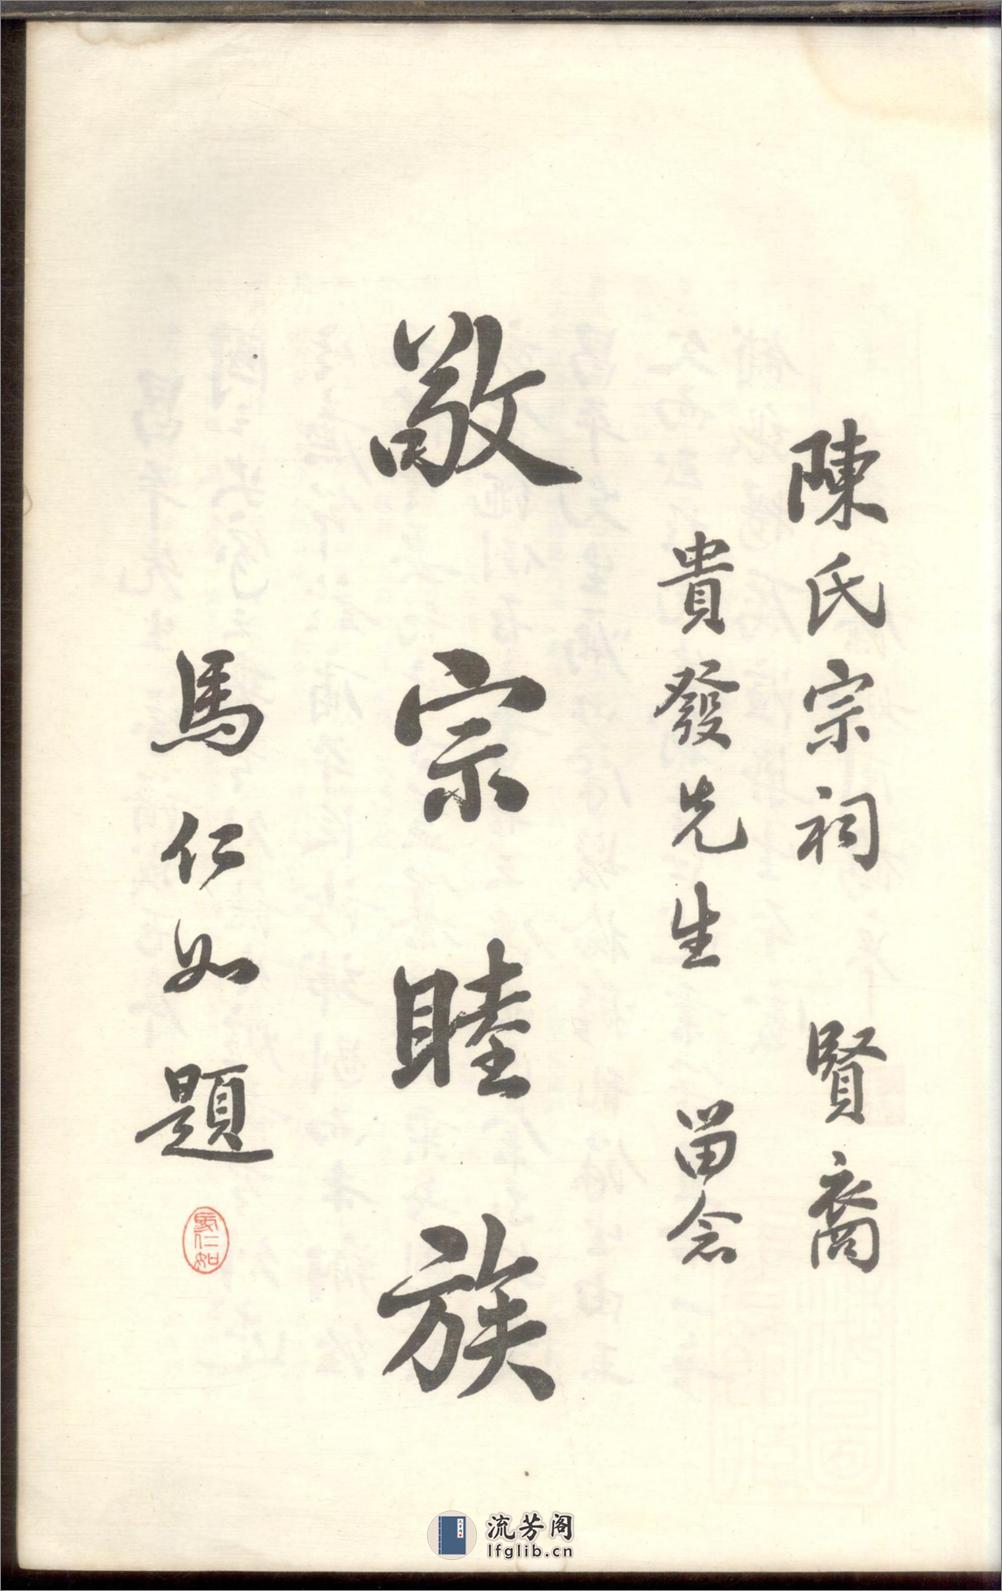 陳氏宗祠 賢裔
貴發先生 留念
敬宗睦族
馬仁如題
馬仁如
流芳阁
lfglib.cn